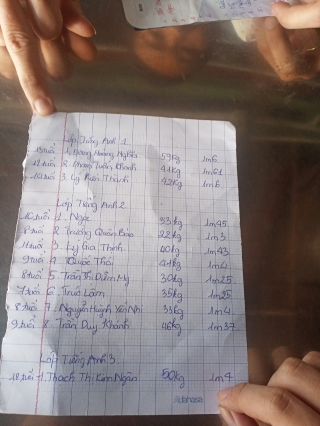 Lớp Tiếng Anh 1
13 tuổi 1. Hoàng Nghĩa 59kg 1m6
12 tuổi 2. Tuấn Khanh 44kg 1m61
3. Lý Thành 42kg 1m6
Lớp Tiếng Anh 2
10 tuổi 1. Ngọc 33kg 1m45
8 tuổi 2. Trương Quốc Bảo 22kg 1m3
11 tuổi 3. Lý Gia Thịnh 40kg 1m43
9 tuổi 4. Quốc Thái 41kg 1m4
8 tuổi 5. Trần Thị Diễm My 30kg 1m25
7 tuổi 6. Trúc Lâm 35kg 1m25
8 tuổi 7. Nguyễn Huỳnh Yến Nhi 33kg 1m4
9 tuổi 8. Trần Duy Khánh 46kg 1m37
Lớp Tiếng Anh 3
1. Thạch Thị Kim Ngân 50kg 1m4